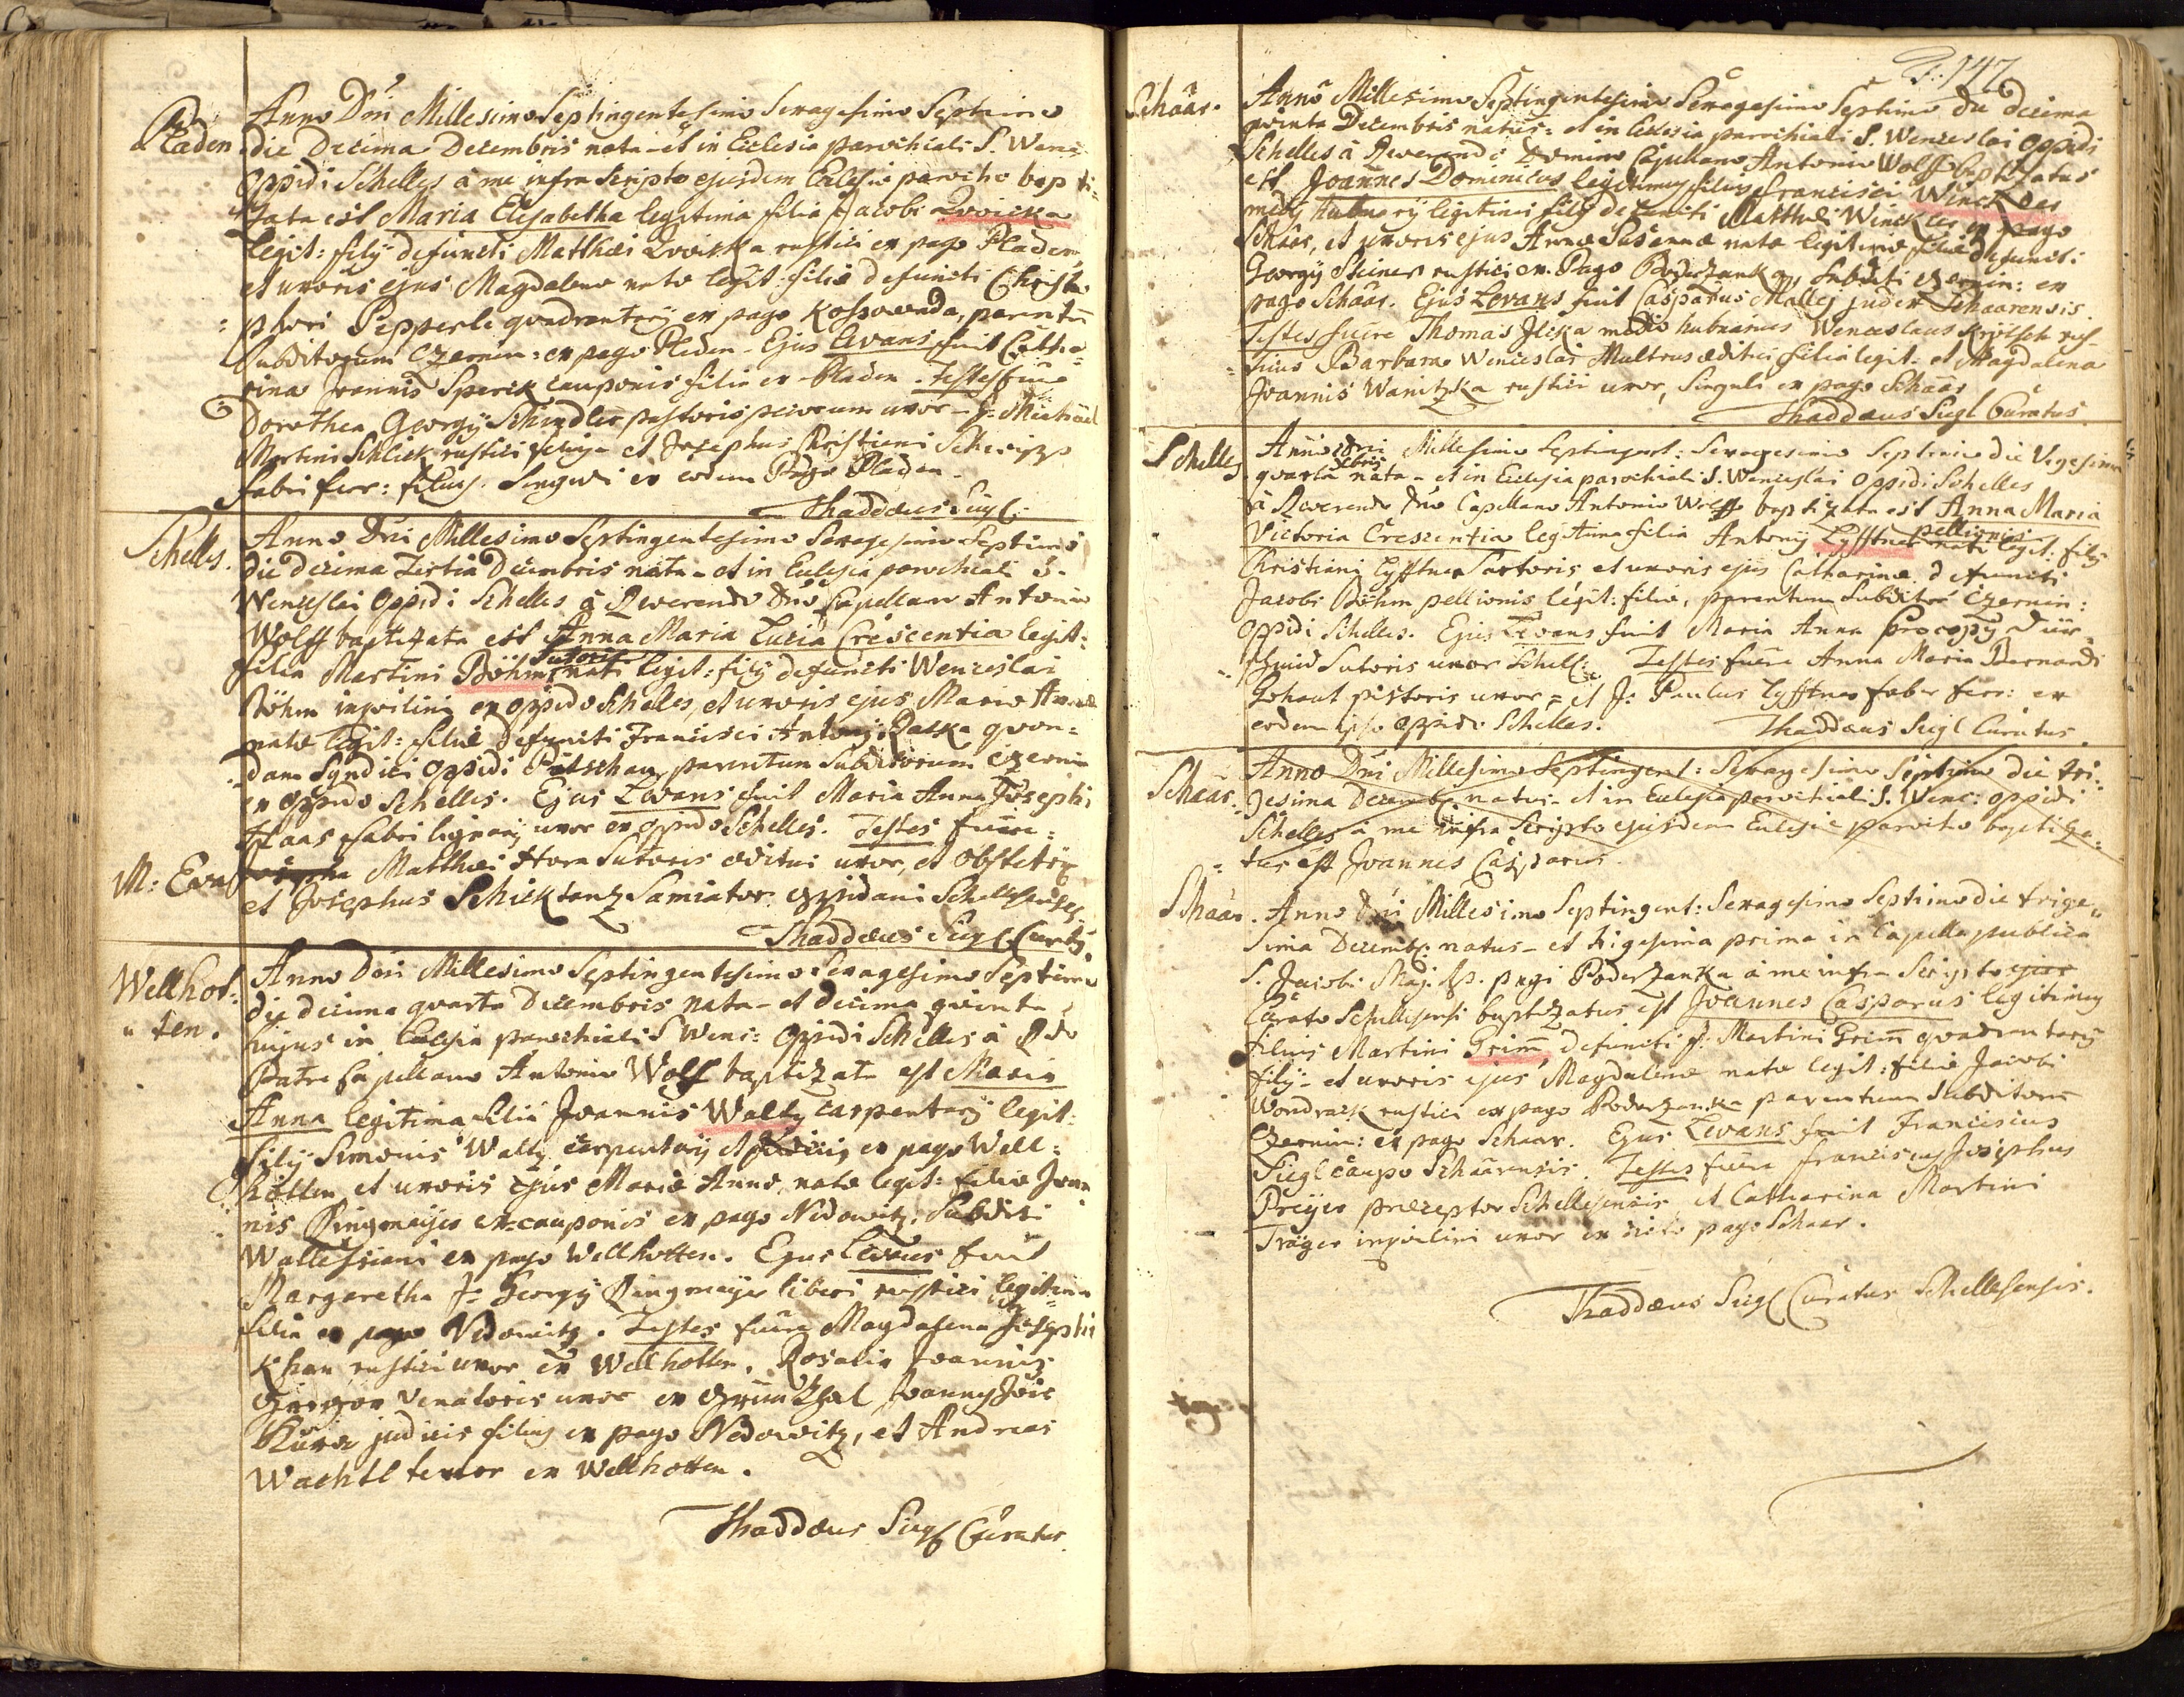 Pladen
Anno Dni Millesimo Septingentesimo Sexagesimo Septimo
die Decima Decembris nata - et in Ecclesia parochiali S. Wenc:
Oppidi Schelles à me infra Scripto ejusdem Ecclesiæ parocho bapti=
zata est Maria Elisabetha legitima filia Jacobi Zwicka
legit: filij defuncti Matthæi Zwicka rustici ex pago Pladen,
et uxoris ejus Magdalenæ natæ legit: filiæ defuncti Christo
phori Pepperle quadrantarij ex pago Kossowada, parentum
Subditorum Czernin: ex pago Pladen - Ejus Levans fuit Catha=
rina Joannis Sperck cauponis filia ex Pladen. Testes fuere
Dorothea Georgij Schindler pastoris uxor - J: Michael
Martini Schlick rustici filius et Josephus Christiani
fabri ferr: filius. Singuli ex eodem Pago Pladen.
Thaddæus Siegl
Schelles.
Anno Dni Millesimo Septingentesimo Sexagesimo Septimo
die decima Tertia Decembris nata - et in Ecclesia parochiali S.
Wenceslai Oppidi Schelles à Reverendo Dno Capellano Antonio
Wolff baptizata est Anna Maria Lucia Crescentia legit:
filia Martini Böhm Sutoris nati legit: filij defuncti Wenceslai
Böhm inquilini ex oppido Schelles, et uxoris ejus Mariæ Annæ
natæ legit: filiæ defuncti Francisci Antonij Ratka quon=
dam Syndici Oppidi parentum Subditorum Czernin
ex oppido Schelles. Ejus Levans fuit Maria Anna Josephi
Haas fabri lignarij uxor ex oppido Schelles. Testes fuere:
M: Eva Matthæi Hora Sutoris æditui uxor, et Obstetrix
et Josephus Schicktanz Samiator oppidani
Thaddæus Siegl Curatus
Wellhot:
ten.
Anno Dni Millesimo Septingentesimo Sexagesimo Septimo
die decima quarta Decembris nata - et decima quinta
hujus in Ecclesia parochiali S Wenc: Oppidi Schelles à Rdo
Patre Capellano Antonio Wolff baptizata est Maria
Anna legitima filia Joannis Waltz carpentarij legit:
filij Simonis Waltz carpentarij ex pago Well=
hotten et uxoris ejus Mariæ Annæ, natæ legit: filiæ Joan
nis Ringmaijer ex-cauponis ex pago Nedowitz. Subditi
ex pago Wellhotten. Ejus Levans fuit
Margaretha J: Georgij Ringmaijer liberi rustici legitima
filia ex pago Nedowitz. Testes fuere Magdalena Josephi
Khan rustici uxor ex Wellhotten. Rosalia Joannis
venatoris uxor ex Grünthal
judicis filius ex pago Nedowitz, et Andreas
Wachtl textor ex Wellhotten.
Thaddæus Siegl Curatus
147
Schaar.
Anno Millesimo Septingentesimo Sexagesimo Septimo die decima
quinta Decembris natus: et in Ecclesia parochiali S. Wenceslai Oppidi
Schelles à Reverendo Domino Capellano Antonio Wolff baptizatus
est Joannes Dominicus legitimus filius Francisci Winckler
medij hubnarij legitimi filij defuncti Matthæi Winckler ex pago
Schaar, et uxoris ejus Annæ Susannæ natæ legitimæ filiæ defuncti
Georgij Steiner rustici ex Pago Podersanka, Subditi Czernin: ex
pago Schaar. Ejus Levans fuit Casparus Malley judex Schaarensis.
Testes fuere Thomas medio hubnarius Wenceslaus rus=
ticus Barbara Wenceslai Multrus æditui filia legit: et Magdalena
Joannis Wanitzka rustici uxor, Singuli ex pago Schaar
Thaddæus Siegl Curatus
Schelles
Anno Dni Millesimo Septingent: Sexagesimo Septimo die Vigesima
quarta Xbris nata - et in Ecclesia parochiali S. Wenceslai Oppidi Schelles
à Reverendo Dno Capellano Antonio Wolff baptizata est Anna Maria
Victoria Crescentia legitima filia Antonij Lyfftner pellionis nati legit: filij
Christiani Lyfftner Sartoris et uxoris ejus Catharinæ defuncti
Jacobi Böhm pellionis legit: filiæ, parentum Subditorum Czernin:
Oppidi Schelles. Ejus Levans fuit Maria Anna Procopij Dür=
schmid Sutoris uxor Schell: Testes fuere Anna Maria Bernardi
Gohaut pistoris uxor = et J: Paulus Lyfftner faber ferr: ex
eodem ipso oppido Schelles.
Thaddæus Siegl Curatus.
Schaar.
Anno Dni Millesimo Septingent: Sexagesimo Septimo die tri=
gesima Decemb: natus - et in Ecclesia parochiali S. Wenc: Oppidi
Schelles à me infra Scripto ejusdem Ecclesiæ parocho baptiza=
tus est Joannes Casparus
Schaar.
Anno Dni Millesimo Septingent: Sexagesimo Septimo die trige=
sima Decemb: natus - et trigesima prima in Capella publica
S. Jacobi Maj. Ap. pagi Podersanka à me infra Scripto ejus
Curato Schellesensi baptizatus est Joannes Casparus legitimus
filius Martini Grim̃, defuncti J: Martini Grim̃ quadrantarij
filij - et uxoris ejus Magdalenæ natæ legit: filiæ Jacobi
Wondrack rustici ex pago Podersanka parentum Subditorum
Czernin: ex pago Schaar. Ejus Levans fuit Franciscus
Siegl caupo Schaarensis. Testes fuere Franciscus Josephus
Preijer præceptor Schellesensis et Catharina Martini
Träger inquilini uxor ex dicto pago Schaar.
Thaddæus Siegl Curatus Schellesensis.